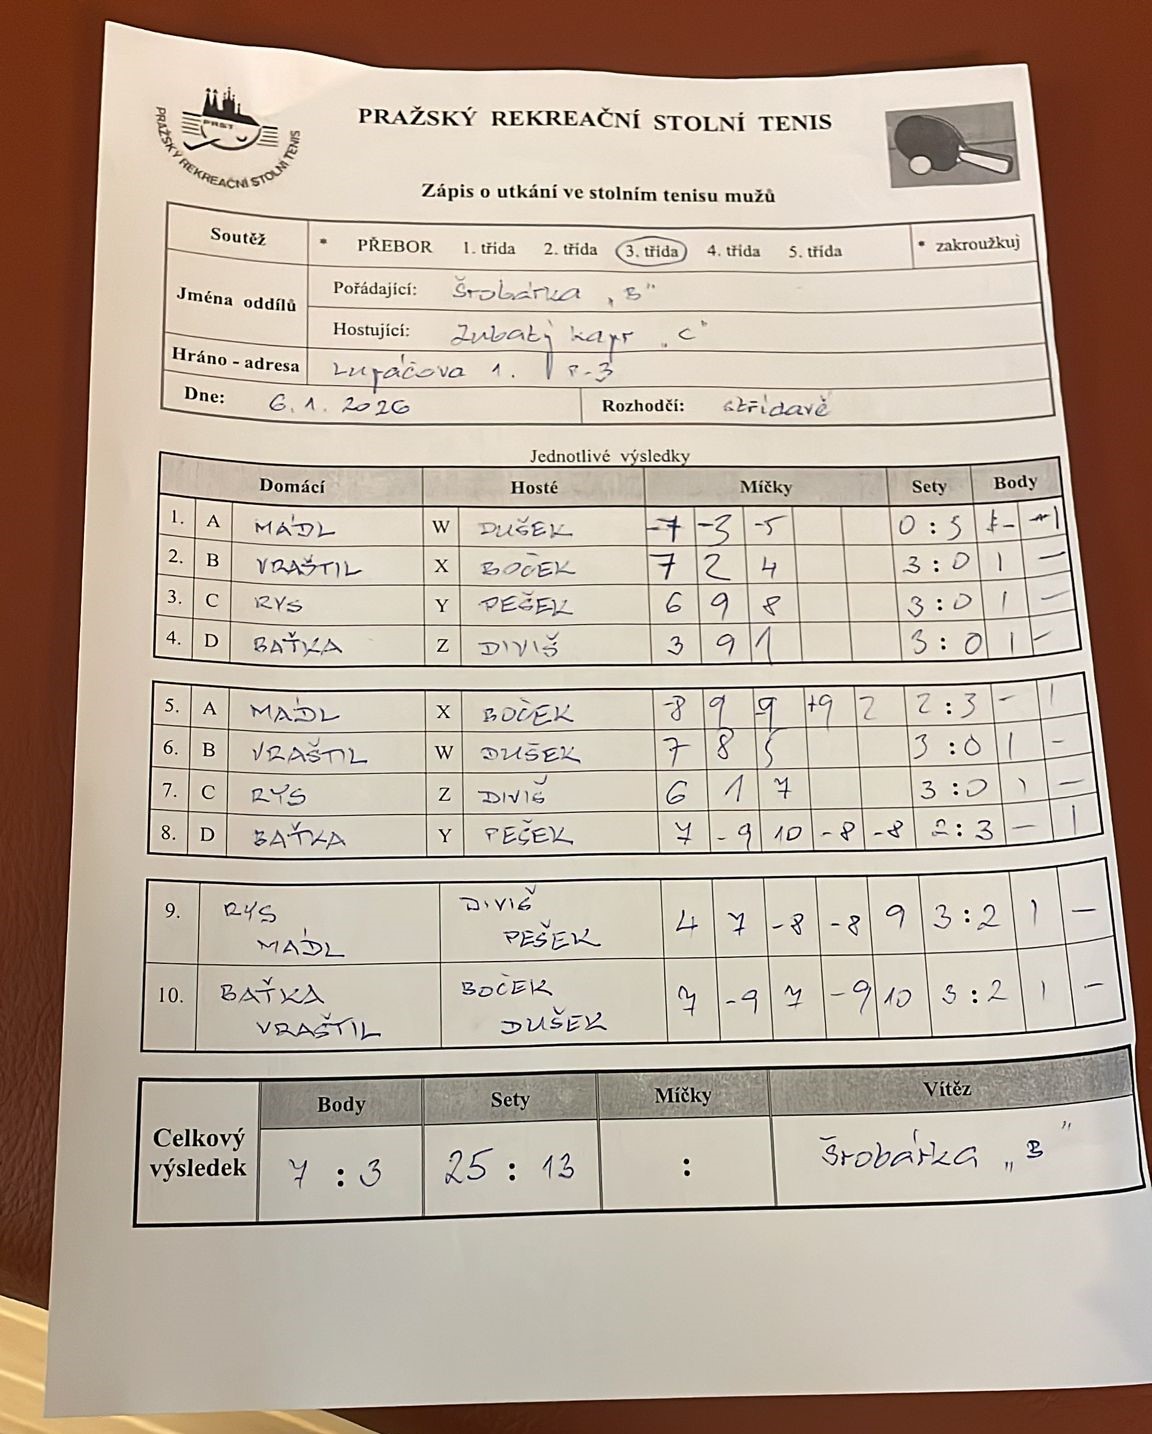 PRAŽSKÝ REKREAČNÍ STOLNÍ TENIS
PRST
PRAŽSKÝ REKREAČNÍ STOLNÍ TENIS
Zápis o utkání ve stolním tenisu mužů
Soutěž * PŘEBOR 1. třída 2. třída 3. třída 4. třída 5. třída * zakroužkuj
Jména oddílů
Pořádající: Šrobárka „B"
Hostující: Zubatý kapr „C"
Hráno - adresa Lupáčova 1. P-3
Dne: 6.1.2026 Rozhodčí: střídavě
Jednotlivé výsledky
Domácí Hosté Míčky Sety Body
1. A MÁDL W DUŠEK -7 -3 -5 0:3 - 1
2. B VRAŠTIL X BOČEK 7 2 4 3:0 1 -
3. C RYS Y PEŠEK 6 9 8 3:0 1 -
4. D BAŤKA Z DIVIŠ 3 9 1 3:0 1 -
5. A MÁDL X BOČEK -8 9 9 2 2:3 - 1
6. B VRAŠTIL W DUŠEK 7 8 5 3:0 1 -
7. C RYS Z DIVIŠ 6 1 7 3:0 1 -
8. D BAŤKA Y PEŠEK 7 -9 10 -8 -8 2:3 - 1
9. RYS DIVIŠ 4 7 -8 -8 9 3:2 1 -
MÁDL PEŠEK
10. BAŤKA BOČEK 7 -9 7 -9 10 3:2 1 -
VRAŠTIL DUŠEK
Celkový výsledek
Body Sety Míčky Vítěz
7 : 3 25 : 13 : Šrobárka „B"